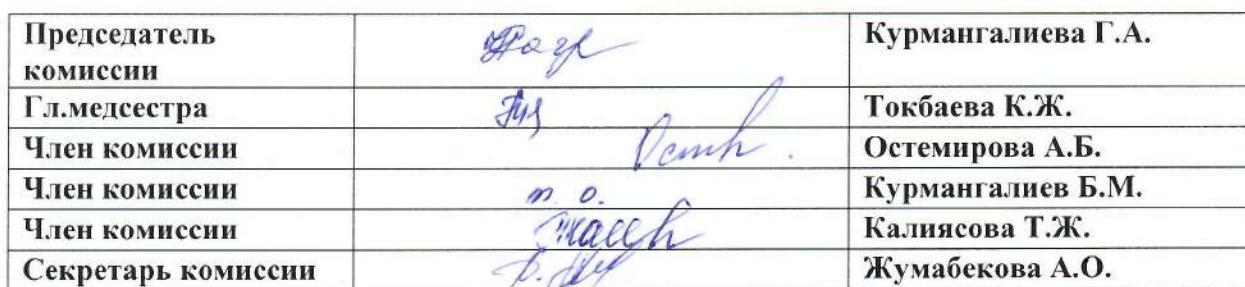 Председатель Курмангалиева Г.А.
комиссии
Гл.медсестра Токбаева К.Ж.
Член комиссии Остемирова А.Б.
Член комиссии т. о. Курмангалиев Б.М.
Член комиссии Калиясова Т.Ж.
Секретарь комиссии Жумабекова А.О.